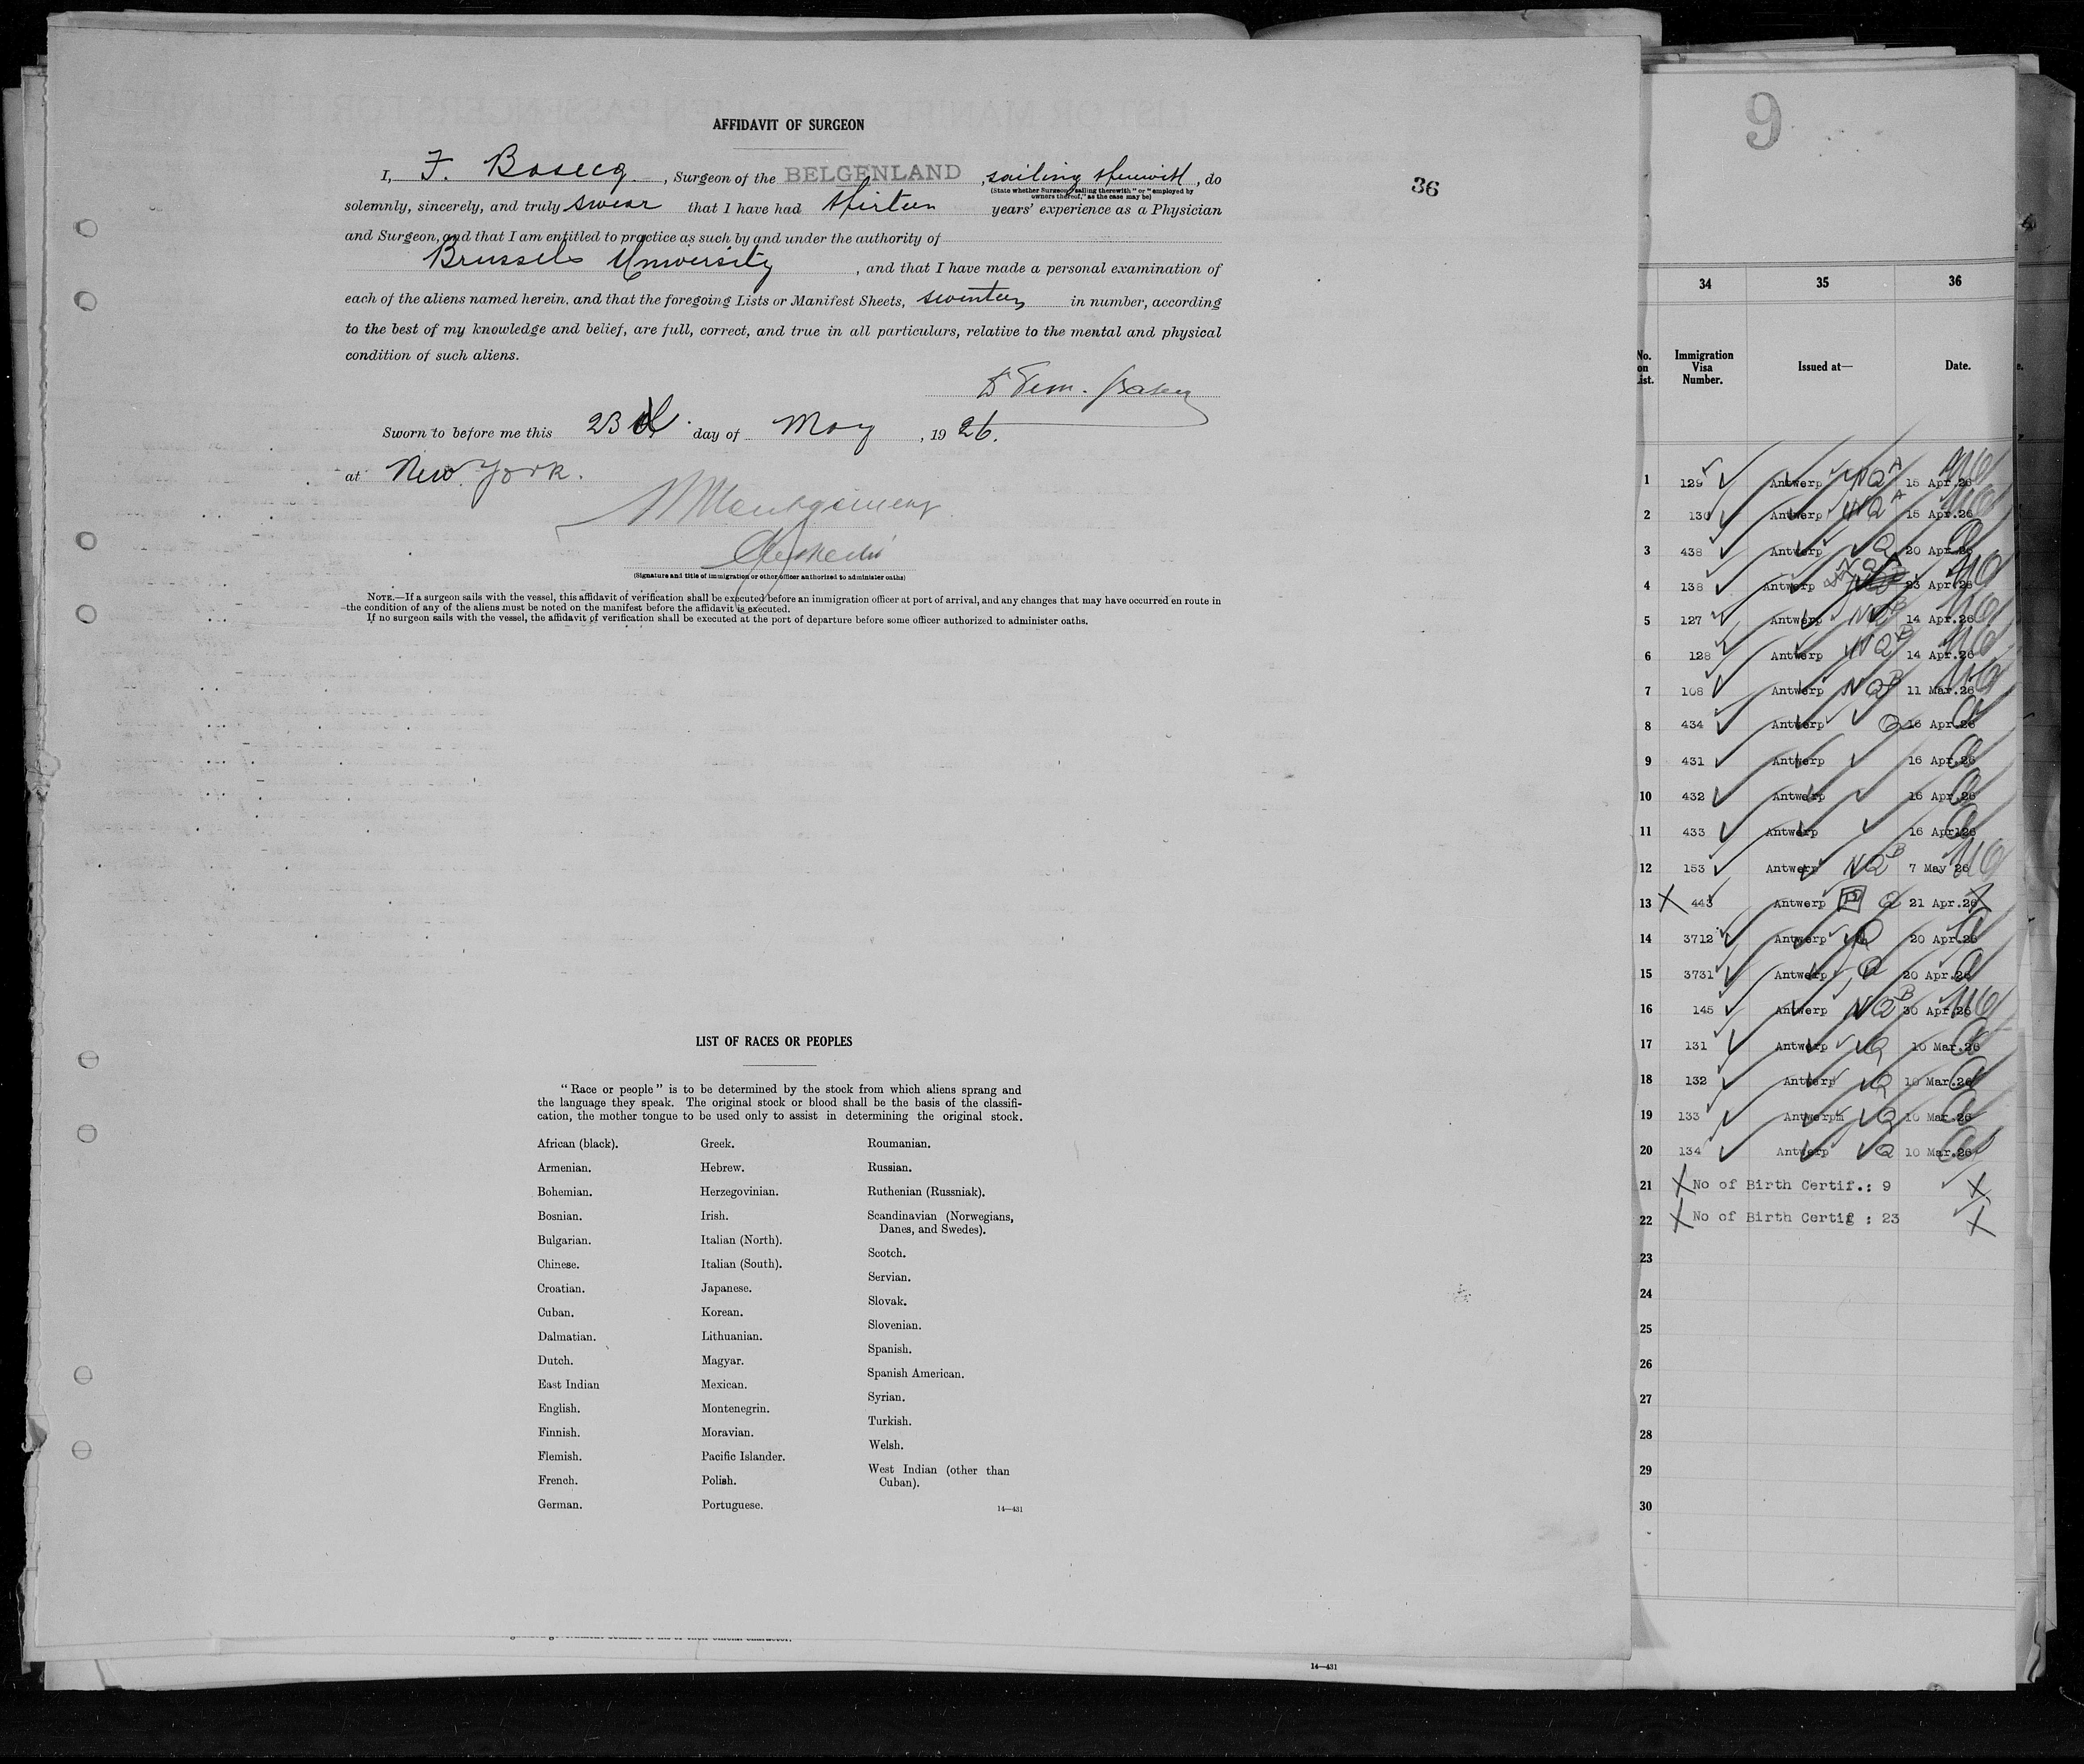 AFFIDAVIT OF SURGEON
I, F. Bosecq, Surgeon of the BELGENLAND, sailing therewith, do
(State whether Surgeon "sailing therewith" or "employed by
owners thereof," as the case may be)
solemnly, sincerely, and truly swear that I have had thirteen years' experience as a Physician
and Surgeon, and that I am entitled to practice as such by and under the authority of
Brussels University, and that I have made a personal examination of
each of the aliens named herein, and that the foregoing Lists or Manifest Sheets, seventeen in number, according
to the best of my knowledge and belief, are full, correct, and true in all particulars, relative to the mental and physical
condition of such aliens.
Sworn to before me this 23d day of May, 1926.
at New York.
Montgomery
(Signature and title of immigration or other officer authorized to administer oaths)
NOTE.—If a surgeon sails with the vessel, this affidavit of verification shall be executed before an immigration officer at port of arrival, and any changes that may have occurred en route in
the condition of any of the aliens must be noted on the manifest before the affidavit is executed.
If no surgeon sails with the vessel, the affidavit of verification shall be executed at the port of departure before some officer authorized to administer oaths.
36
LIST OF RACES OR PEOPLES
"Race or people" is to be determined by the stock from which aliens sprang and
the language they speak. The original stock or blood shall be the basis of the classifi-
cation, the mother tongue to be used only to assist in determining the original stock.
African (black).
Armenian.
Bohemian.
Bosnian.
Bulgarian.
Chinese.
Croatian.
Cuban.
Dalmatian.
Dutch.
East Indian
English.
Finnish.
Flemish.
French.
German.
Greek.
Hebrew.
Herzegovinian.
Irish.
Italian (North).
Italian (South).
Japanese.
Korean.
Lithuanian.
Magyar.
Mexican.
Montenegrin.
Moravian.
Pacific Islander.
Polish.
Portuguese.
Roumanian.
Russian.
Ruthenian (Russniak).
Scandinavian (Norwegians,
Danes, and Swedes).
Scotch.
Servian.
Slovak.
Slovenian.
Spanish.
Spanish American.
Syrian.
Turkish.
Welsh.
West Indian (other than
Cuban).
14—431
14—431
9
34 35 36
No. on List. Immigration Visa Number. Issued at— Date.
1 129 Antwerp NQA 15 Apr.26
2 130 Antwerp NQA 15 Apr.26
3 438 Antwerp Q 20 Apr.26
4 138 Antwerp 23 Apr.26
5 127 Antwerp NQB 14 Apr.26
6 128 Antwerp NQB 14 Apr.26
7 108 Antwerp NQB 11 Mar.26
8 434 Antwerp Q 16 Apr.26
9 431 Antwerp 16 Apr.26
10 432 Antwerp 16 Apr.26
11 433 Antwerp 16 Apr126
12 153 Antwerp NQB 7 May 26
13 X 443 Antwerp Q 21 Apr.26 X
14 3712 Antwerp Q 20 Apr.26
15 3731 Antwerp Q 20 Apr.26
16 145 Antwerp NQB 30 Apr.26
17 131 Antwerp Q 10 Mar.26
18 132 Antwerp Q 10 Mar.26
19 133 Antwerpm Q 10 Mar.26
20 134 Antwerp Q 10 Mar.26
21 X No of Birth Certif.: 9 X
22 X No of Birth Certif : 23 X
23
24
25
26
27
28
29
30